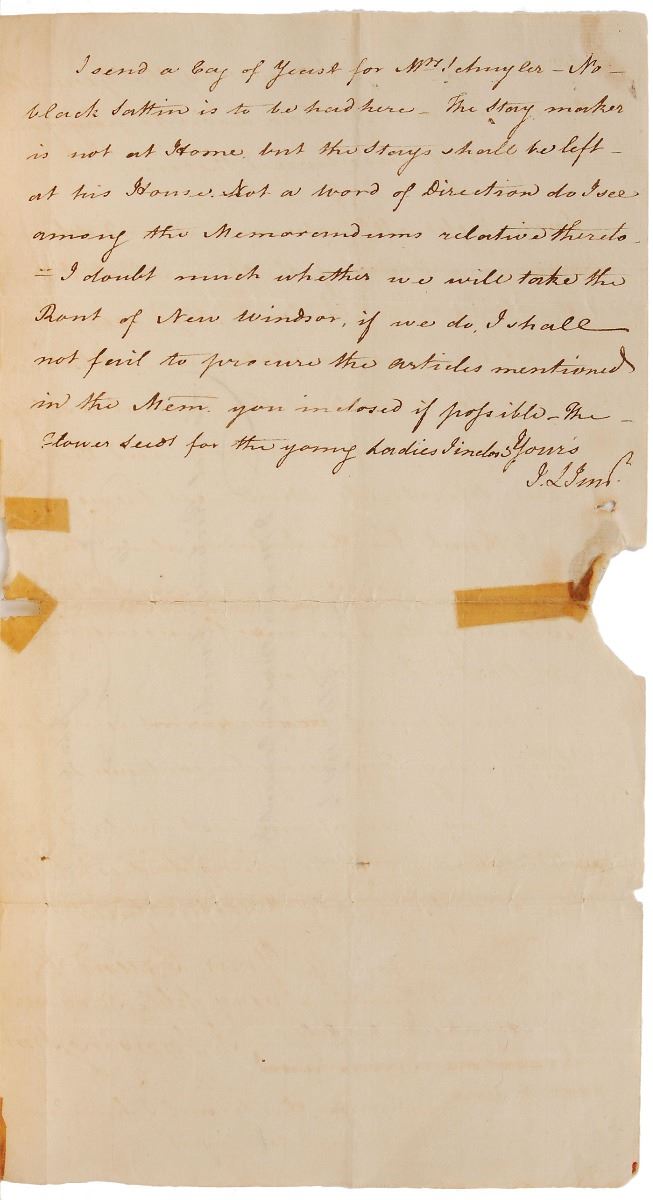 I send a Cag of Yeast for Mrs. Schuyler – No –
black Sattin is to be had here – The Stay maker
is not at Home but the Stays shall be left –
at his House. Not a word of Direction do I see
among the Memorandums relative thereto.
= I doubt much whether we will take the
Rout of New Windsor, if we do, I shall
not fail to procure the articles mentioned
in the Mem. you inclosed if possible – The –
Flower Seeds for the young Ladies I inclose Yours